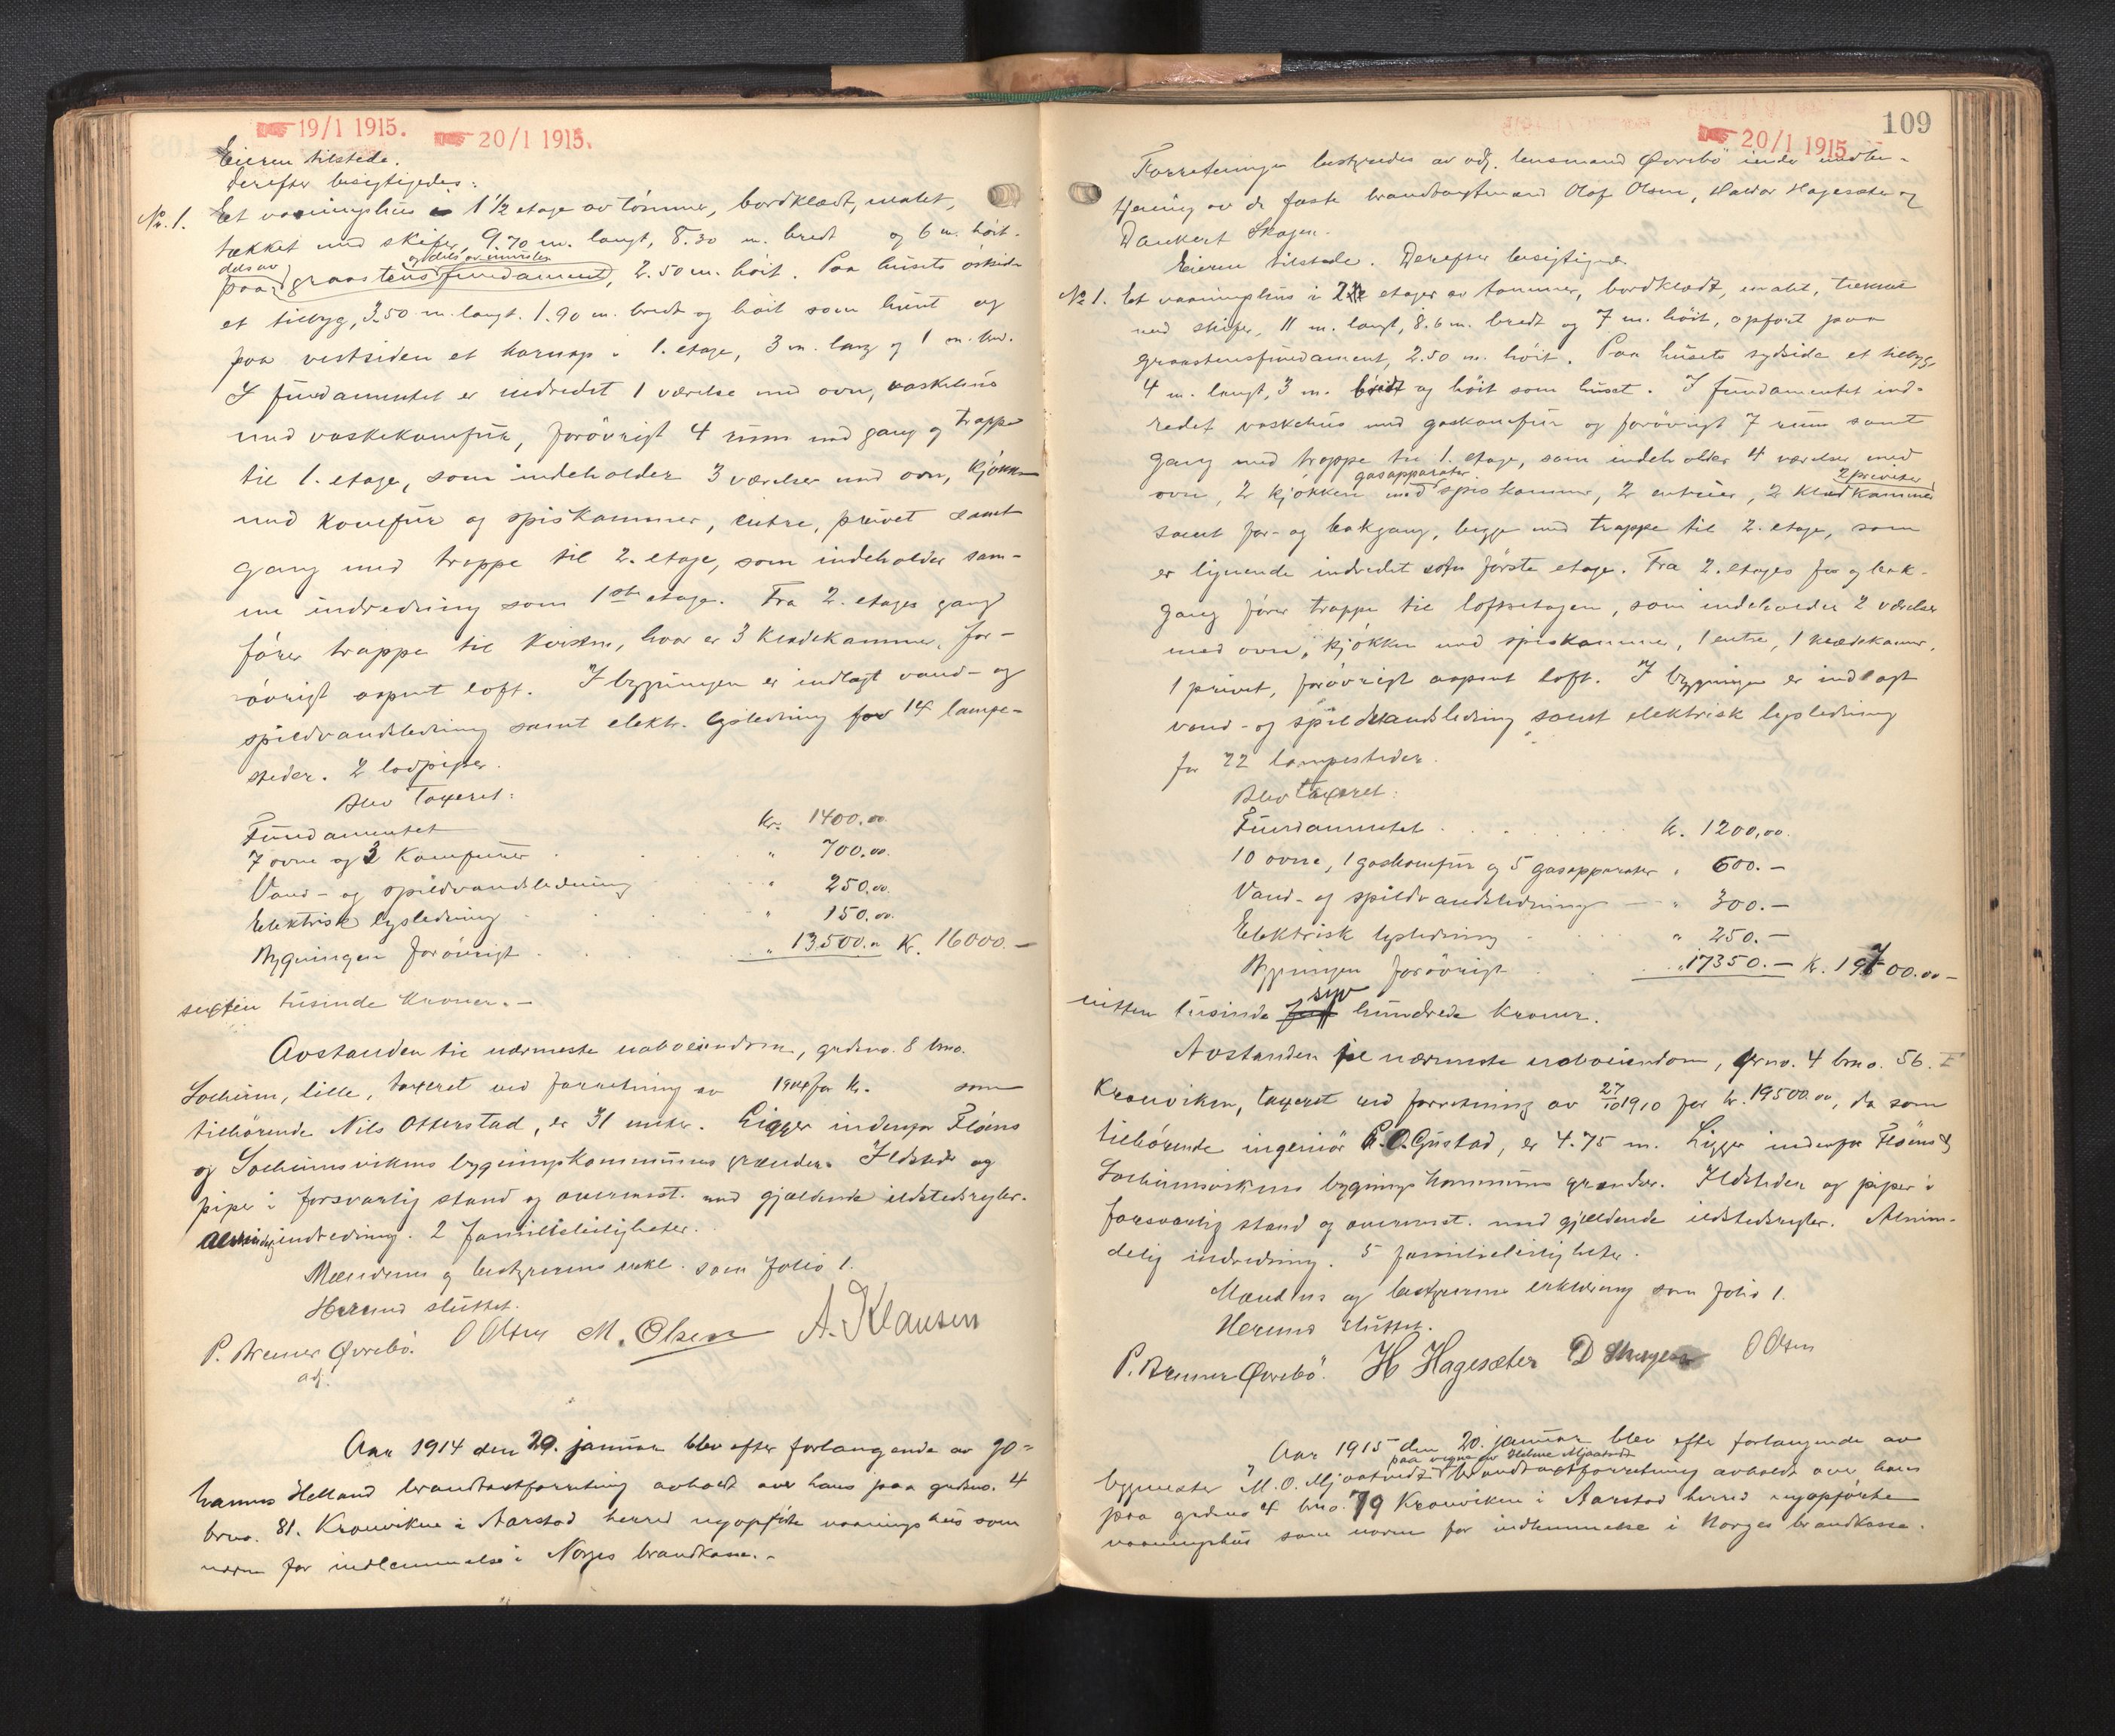 19/1 1915.
20/1 1915.
Eieren tilstede.
Derefter besigtigedes:
No. 1. Et vaaningshus i 1 1/2 etage av tömmer, bordklædt, malet,
tækket med skifer, 9.70 m. langt, 8.30 m. bredt og 6 m. höit.
dels av og dels av mursten
paa graastensfundament, 2.50 m. höit. Paa husets östside
et tilbyg, 3.50 m. langt. 1.90 m. bredt og höit som huset og
paa vestsiden et karnap i 1. etage, 3 m. lang og 1 m. br.
I fundamentet er indredet 1 værelse med ovn, vaskehus
med vaskekomfür, forövrigt 4 rum med gang og trappe
til 1. etage, som indeholder 3 værelser med ovn, kjökken
med komfür og spiskammer, entre, privet samt
gang med trappe til 2. etage, som indeholder sam-
me indredning som 1ste etage. Fra 2. etages gang
förer trappe til kvisten, hvor er 3 klædekammer, for-
övrigt aapent loft. I bygningen er indlagt vand- og
spildvandsledning samt elektr. lysledning for 14 lampe-
steder. 2 lodpiper.
Blev taxeret:
Fundamentet kr. 1400.00
7 ovne og 3 komfurer " 700.00.
Vand- og spildvandsledning " 250.00
Elektrisk lysledning " 150.00.
Bygningen forövrigt " 13500.00 Kr. 16000.—
sexten tusinde kroner.—
Avstanden til nærmeste naboeiendom, grdsno. 8 brno.
Solheim, lille, taxeret ved forretning av 1904 for kr. som
tilhörende Nils Otterstad, er 31 meter. Ligger indenfor Flöens
og Solheimsvikens bygningskommunes grændser. Ildsteder og
piper i forsvarlig stand og overensst. med gjældende ildstedsregler.
Almindelig indredning. 2 familieleiligheter.
Mændenes og bestyrerens erkl. som folio 1.
Hermed sluttet.
P. Bremer Øvrebö. O Olsen M. Olsen A. Klausen
adj.
Aar 1914 den 20. januar blev efter forlangende av Jo-
hannes Helland brandtaxtforretning avholdt over hans paa grdsno. 4
brno. 81. Kronviken i Aarstad herred nyopförte vaaningshus som
norm for indlemmelse i Norges brandkasse.-
20/1 1915
109
Forretningen bestyredes av adj. lensmand Øvrebö under medbe-
tjening av de faste brandtaxtmænd Olaf Olsen, Haldor Hagesæter og
Dankert Skagen.
Eieren tilstede. Derefter besigtigedes
No 1. Et vaaningshus i 2 etager av tømmer, bordklædt, malet, tækket
med skifer, 11 m. langt, 8.6 m. bredt og 7 m. höit, opfört paa
graastensfundament, 2.50 m. höit. Paa husets sydside et tilbyg,
4 m. langt, 3 m. bredt og höit som huset. I fundamentet ind-
redet vaskehus med gaskomfür og forövrigt 7 rum samt
gang med trappe til 1. etage, som indeholder 4 værelser med
gasapparater 2 priveter
ovn, 2 kjökken med spiskammer, 2 entreer, 2 klædkammer
samt for- og bakgang, begge med trappe til 2. etage, som
er lignende indredet som förste etage. Fra 2. etages for og bak-
gang förer trappe til loftsetagen, som indeholder 2 værelser
med ovn, kjökken med spiskammer, 1 entre, 1 klædekamer,
1 privet, forövrigt aapent loft. I bygningen er indlagt
vand- og spildevandsledning samt elektrisk lysledning
for 22 lampesteder.
Blev taxeret:
Fundamentet kr. 1200,00.
10 ovne, 1 gaskomfür og 5 gasapparater " 600.—
Vand- og spildvandsledning " 300.—
Elektrisk lysledning " 250.—
Bygningen forövrigt " 17350.— Kr. 19700.00—
syv
nitten tusinde fem hundrede kroner.
Avstanden til nærmeste naboeiendom, grno. 4 brno. 56.
Kronviken, taxeret ved forretning av 27/10 1910 for kr. 19500.00, da som
tilhörende ingeniör P. O. Gustad, er 4.75 m. Ligger indenfor Flöens &
Solheimsvikens bygningskommunes grændser. Ildsteder og piper i
forsvarlig stand og overensst. med gjældende ildstedsregler. Almin-
delig indredning. 5 familieleiligheter.
Mændenes og bestyrerens erklæring som folio 1.
Hermed sluttet.
P. Bremer Øvrebö. H Hagesæter D Skagen O Olsen
Aar 1915 den 20. januar blev efter forlangende av
paa vegne av
bygmester M. O. Mjaatvedt brandtaxtforretning avholdt over hans
paa grdsno 4 brno. 79 Kronviken i Aarstad herred nyopförte
vaaningshus som norm for indlemmelse i Norges brandkasse.